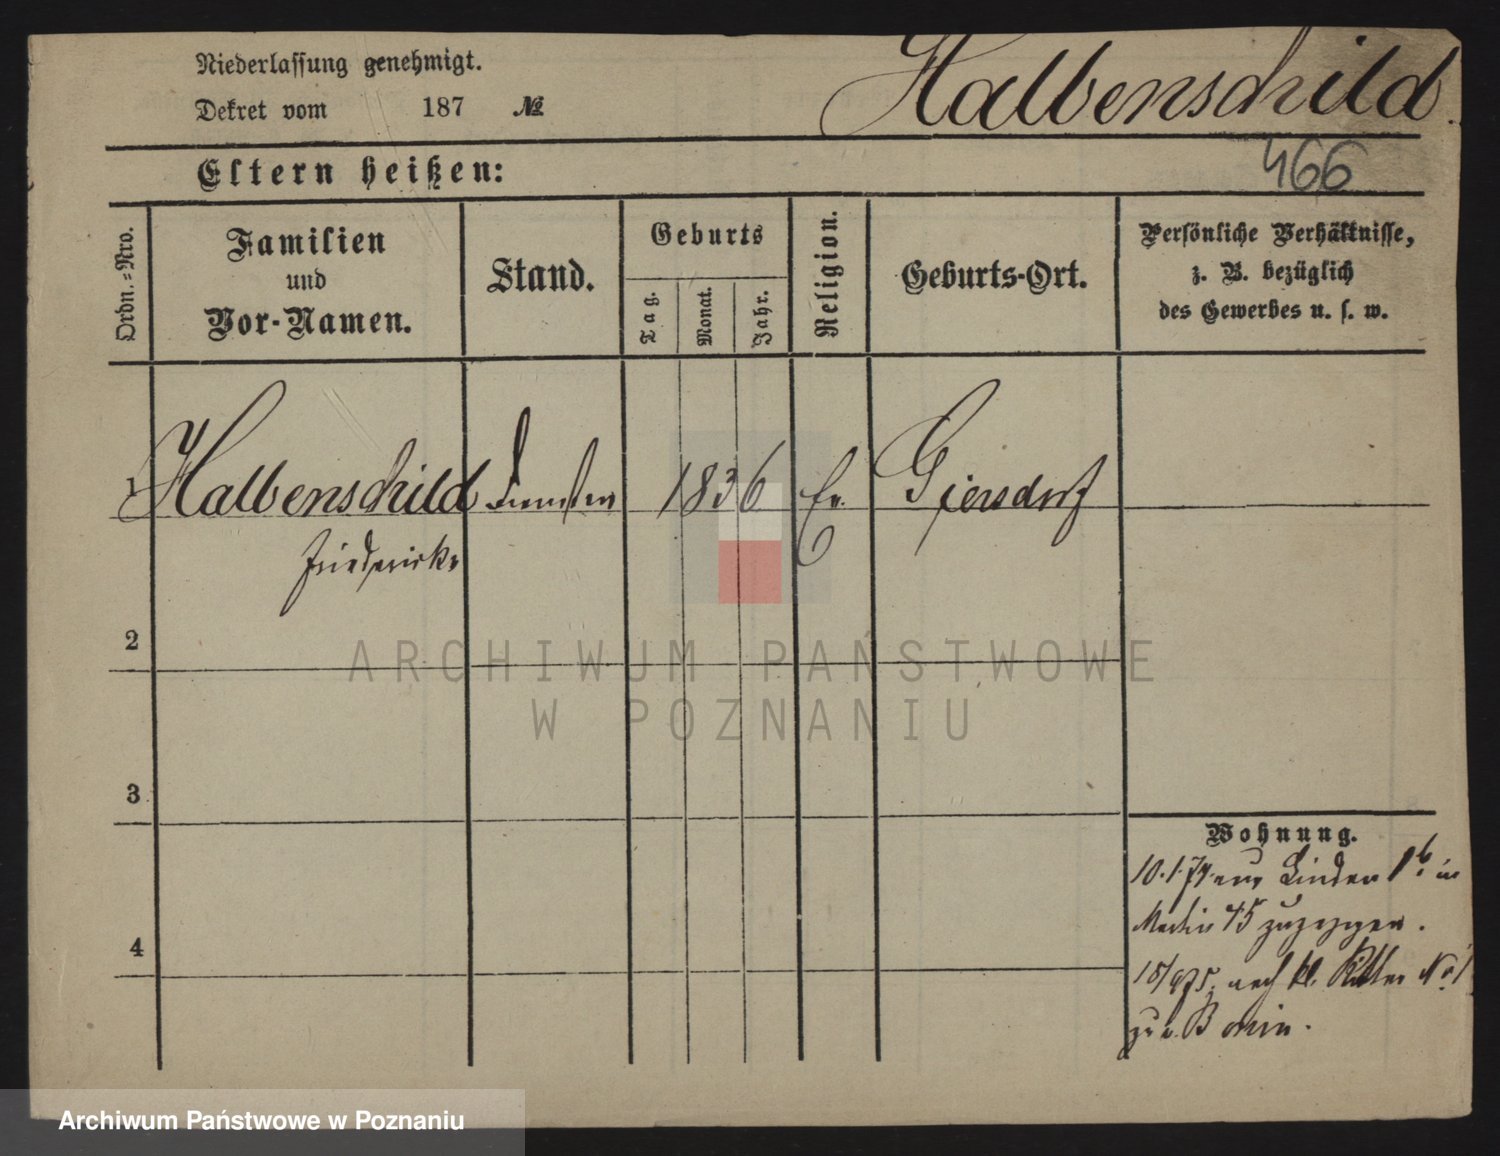 Niederlassung genehmigt.
Dekret vom 187 №
Halbenschild.
466
Eltern heißen:
Ordn.-Nro.
Familien
und
Vor-Namen.
Stand.
Geburts
Tag.
Monat.
Jahr.
Religion.
Geburts-Ort.
Persönliche Verhältnisse,
z. B. bezüglich
des Gewerbes u. s. w.
1 Halbenschild 1836 Ev. Giersdorf
Friederike
2
3
4
Wohnung.
10.1.74 aus Linden 1b in
Martin 45 zugezogen.
nach kl. Ritter No 1
zu v. Bonin.
ARCHIWUM PAŃSTWOWE
W POZNANIU
Archiwum Państwowe w Poznaniu